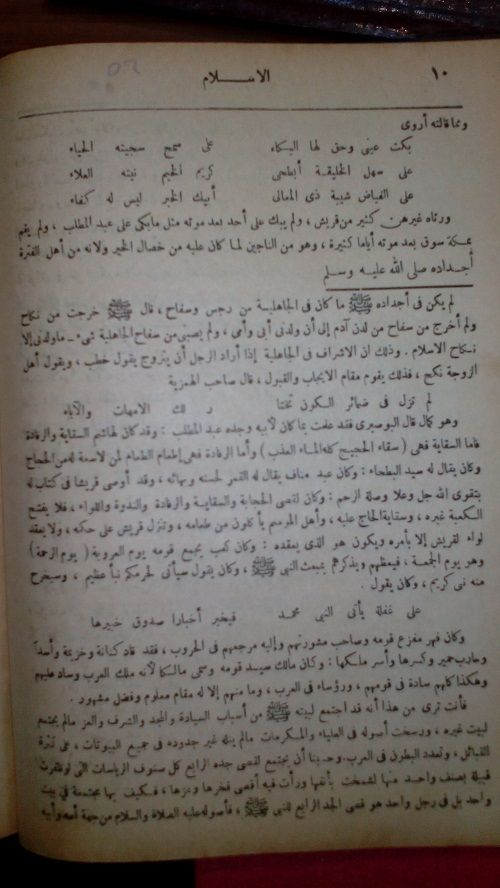 ١٠
الاسلام
ومما قالته أروى
بكت عينى وحق لها البكاء على سمح سجيته الحياء
على سهل الخليقة أبطحى كريم الخيم نيته العلاء
على الفياض شيبة ذى المعالى أبيك الخير ليس له كفاء
ورثاه غيرهن كثير من قريش ، ولم يبك على أحد بعد موته مثل مابكى على عبد المطلب ، ولم يقم
بمكة سوق بعد موته أياما كثيرة ، وهو من الناجين لما كان عليه من خصال الخير ولانه من أهل الفترة
أجداده صلى الله عليه وسلم
لم يكن فى أجداده ﷺ ما كان فى الجاهلية من رجس وسفاح ، قال ﷺ خرجت من نكاح
ولم أخرج من سفاح من لدن آدم إلى أن ولدنى أبى وأمى ، ولم يصبنى من سفاح الجاهلية شىء ـ ماولدنى إلا
نكاح الاسلام . وذلك ان الاشراف فى الجاهلية إذا أراد الرجل أن يتزوج يقول خطب ، ويقول أهل
الزوجة نكح ، فذلك يقوم مقام الايجاب والقبول ، قال صاحب الهمزية
لم تزل فى ضمائر الكون تختا ر لك الامهات والآباء
وهو كما قال البوصيرى فقد علمت بما كان لأبيه وجده عبد المطلب : وقد كان لهاشم السقاية والرفادة
فاما السقاية فهى ( سقاء الحجيج كله الماء العذب ) وأما الرفادة فهى إطعام الطعام لمن لاسعة له من الحجاج
وكان يقال له سيد البطحاء : وكان عبد مناف يقال له القمر لحسنه وبهائه ، وقد أوصى قريشا فى كتاب له
بتقوى الله جل وعلا وصلة الرحم : وكان لقصى الحجابة والسقاية والرفادة والندوة واللواء ، فلا يفتح
الكعبة غيره ، وسقاية الحاج عليه ، وأهل الموسم يأكلون من طعامه ، وتنزل قريش على حكمه ، ولا يعقد
لواء لقريش إلا بأمره ويكون هو الذى يعقده : وكان كعب يجمع قومه يوم العروبة ( يوم الرحمة )
وهو يوم الجمعة ، فيعظهم ويذكرهم بمبعث النبى ﷺ ، وكان يقول سيأتى لحرمكم نبأ عظيم ، وسيخرج
منه نبى كريم ، وكان يقول .
على غفلة يأتى النبى محمد فيخبر أخبارا صدوق خبيرها
وكان فهر مفزع قومه وصاحب مشورتهم وإليه مرجعهم فى الحروب ، فقد قاد كنانة وخزيمة وأسداً
وحارب حمير وكسرها وأسر ملكها : وكان مالك سيد قومه وسمى مالكا لأنه ملك العرب وساد عليهم
وهكذا كلهم سادة فى قومهم ، ورؤساء فى العرب ، وما منهم إلا له مقام معلوم وفضل مشهور .
فأنت ترى من هذا أنه قد اجتمع لبيته ﷺ من أسباب السيادة والمجد والشرف والعز مالم يجتمع
لبيت غيره ، ورسخت أصوله فى العلياء والمكرمات مالم ينله غير جدوده فى جميع البيوتات ، على كثرة
القبائل ، وتعدد البطون فى العرب . وحسبنا أن يجتمع لقصى جده الرابع كل صنوف الرياسات التى لو ظفرت
قبيلة بصنف واحد منها لشمخت بأنفها ورأت فيه أقصى فخرها وعزها ، فكيف بها مجتمعة فى بيت
واحد بل فى رجل واحد هو قصى الجد الرابع للنبى ﷺ ، فأصوله عليه الصلاة والسلام من جهة أمه وأبيه